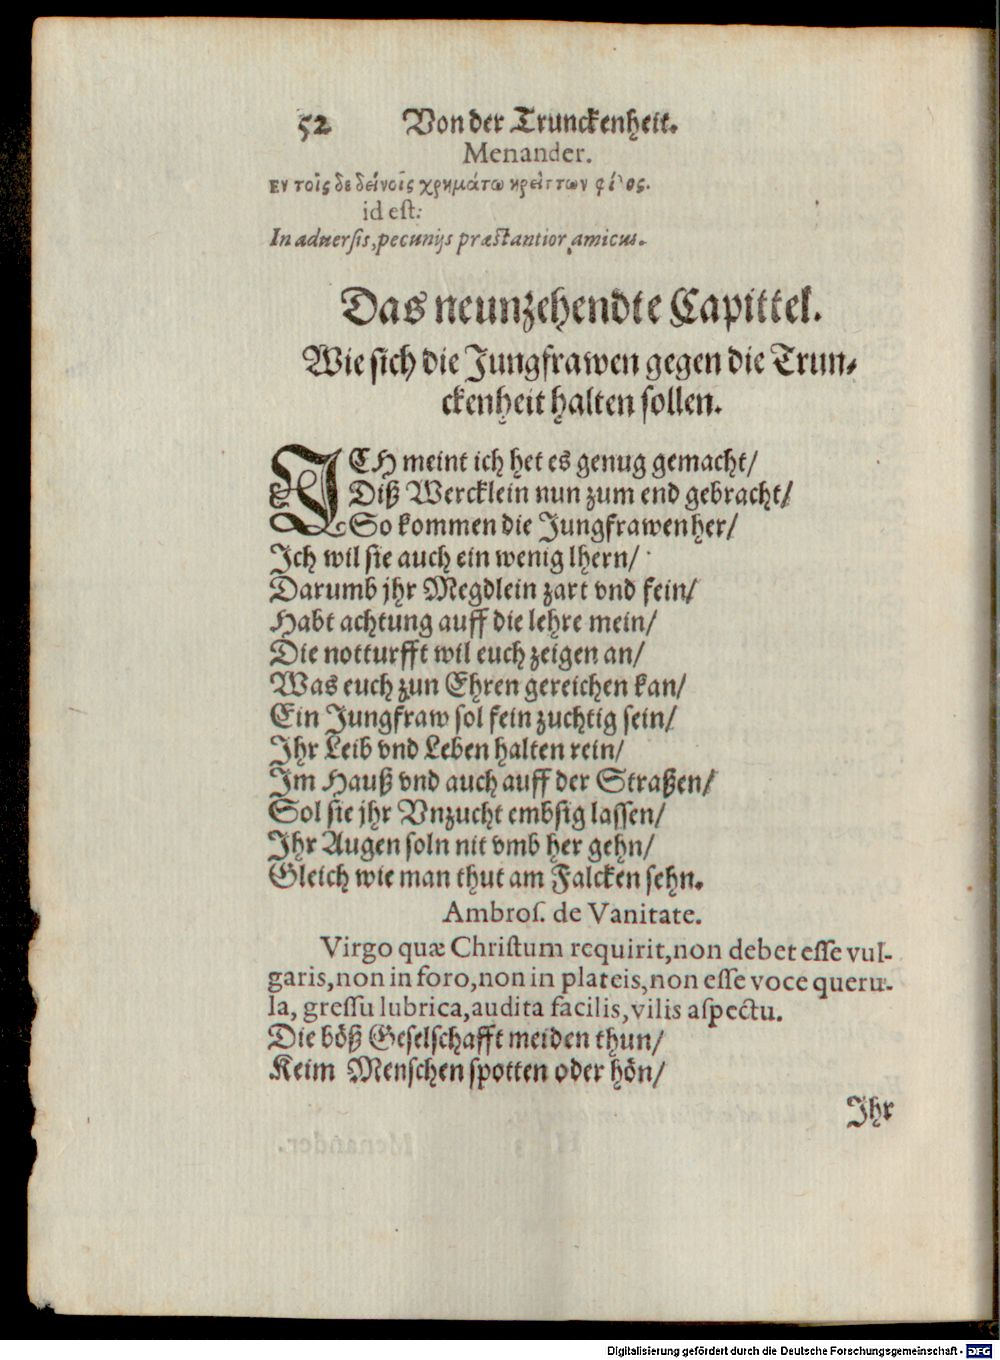 52 Von der Trunckenheit.
Menander.
εν τοῖς δε δείνοῖς χρημάτω κρεῖττων φίλος.
id est:
In aduersis, pecunijs præstantior amicus.
Das neunzehendte Capittel.
Wie sich die Jungfrawen gegen die Trun-
ckenheit halten sollen.
ICH meint ich het es genug gemacht/
Diß Wercklein nun zum end gebracht/
So kommen die Jungfrawen her/
Ich wil sie auch ein wenig lhern/
Darumb jhr Megdlein zart vnd fein/
Habt achtung auff die lehre mein/
Die notturfft wil euch zeigen an/
Was euch zun Ehren gereichen kan/
Ein Jungfraw sol fein zuchtig sein/
Ihr Leib vnd Leben halten rein/
Im Hauß vnd auch auff der Straßen/
Sol sie jhr Vnzucht embsig lassen/
Ihr Augen soln nit vmb her gehn/
Gleich wie man thut am Falcken sehn.
Ambros. de Vanitate.
Virgo quæ Christum requirit, non debet esse vul-
garis, non in foro, non in plateis, non esse voce queru-
la, gressu lubrica, audita facilis, vilis aspectu.
Die böß Geselschafft meiden thun/
Keim Menschen spotten oder hön/
Ihr
Digitalisierung gefördert durch die Deutsche Forschungsgemeinschaft - DFG